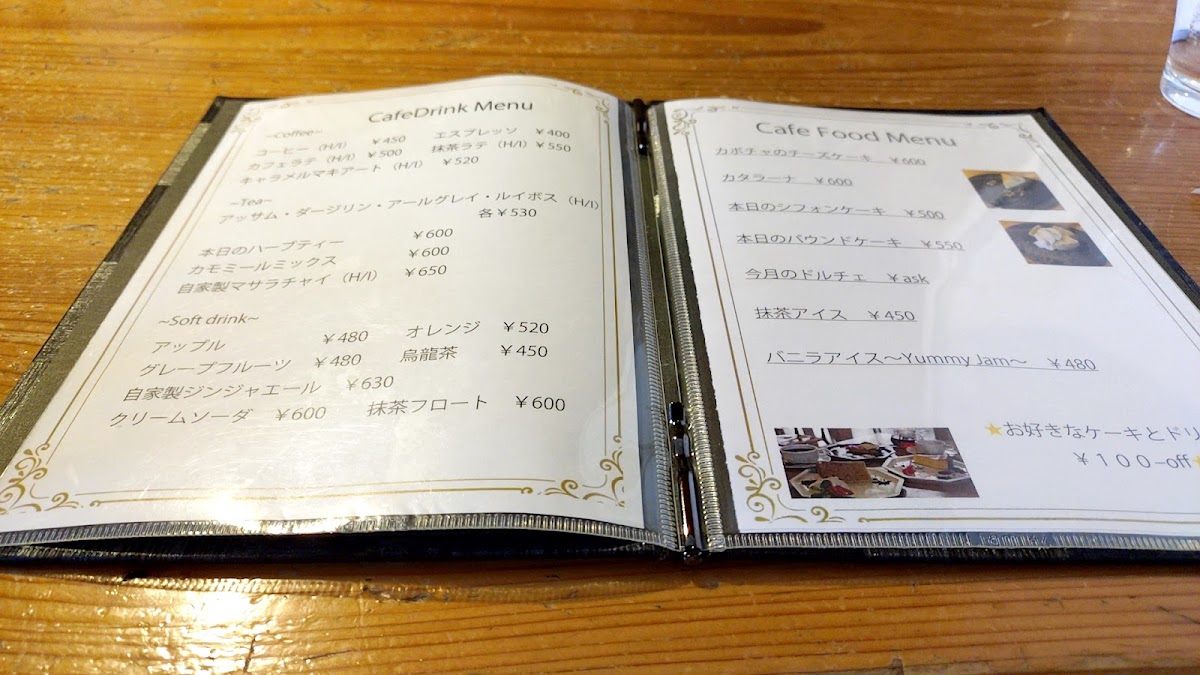 CafeDrink Menu
~Coffee~
コーヒー (H/I) ￥450 エスプレッソ ￥400
カフェラテ (H/I) ￥500 抹茶ラテ (H/I) ￥550
キャラメルマキアート (H/I) ￥520
~Tea~
アッサム・ダージリン・アールグレイ・ルイボス (H/I)
各￥530
本日のハーブティー ￥600
カモミールミックス ￥600
自家製マサラチャイ (H/I) ￥650
~Soft drink~
アップル ￥480 オレンジ ￥520
グレープフルーツ ￥480 烏龍茶 ￥450
自家製ジンジャエール ￥630
クリームソーダ ￥600 抹茶フロート ￥600
Cafe Food Menu
カボチャのチーズケーキ ￥600
カタラーナ ￥600
本日のシフォンケーキ ￥500
本日のパウンドケーキ ￥550
今月のドルチェ ￥ask
抹茶アイス ￥450
バニラアイス～Yummy Jam～ ￥480
⭐お好きなケーキとドリ
￥１００-off⭐